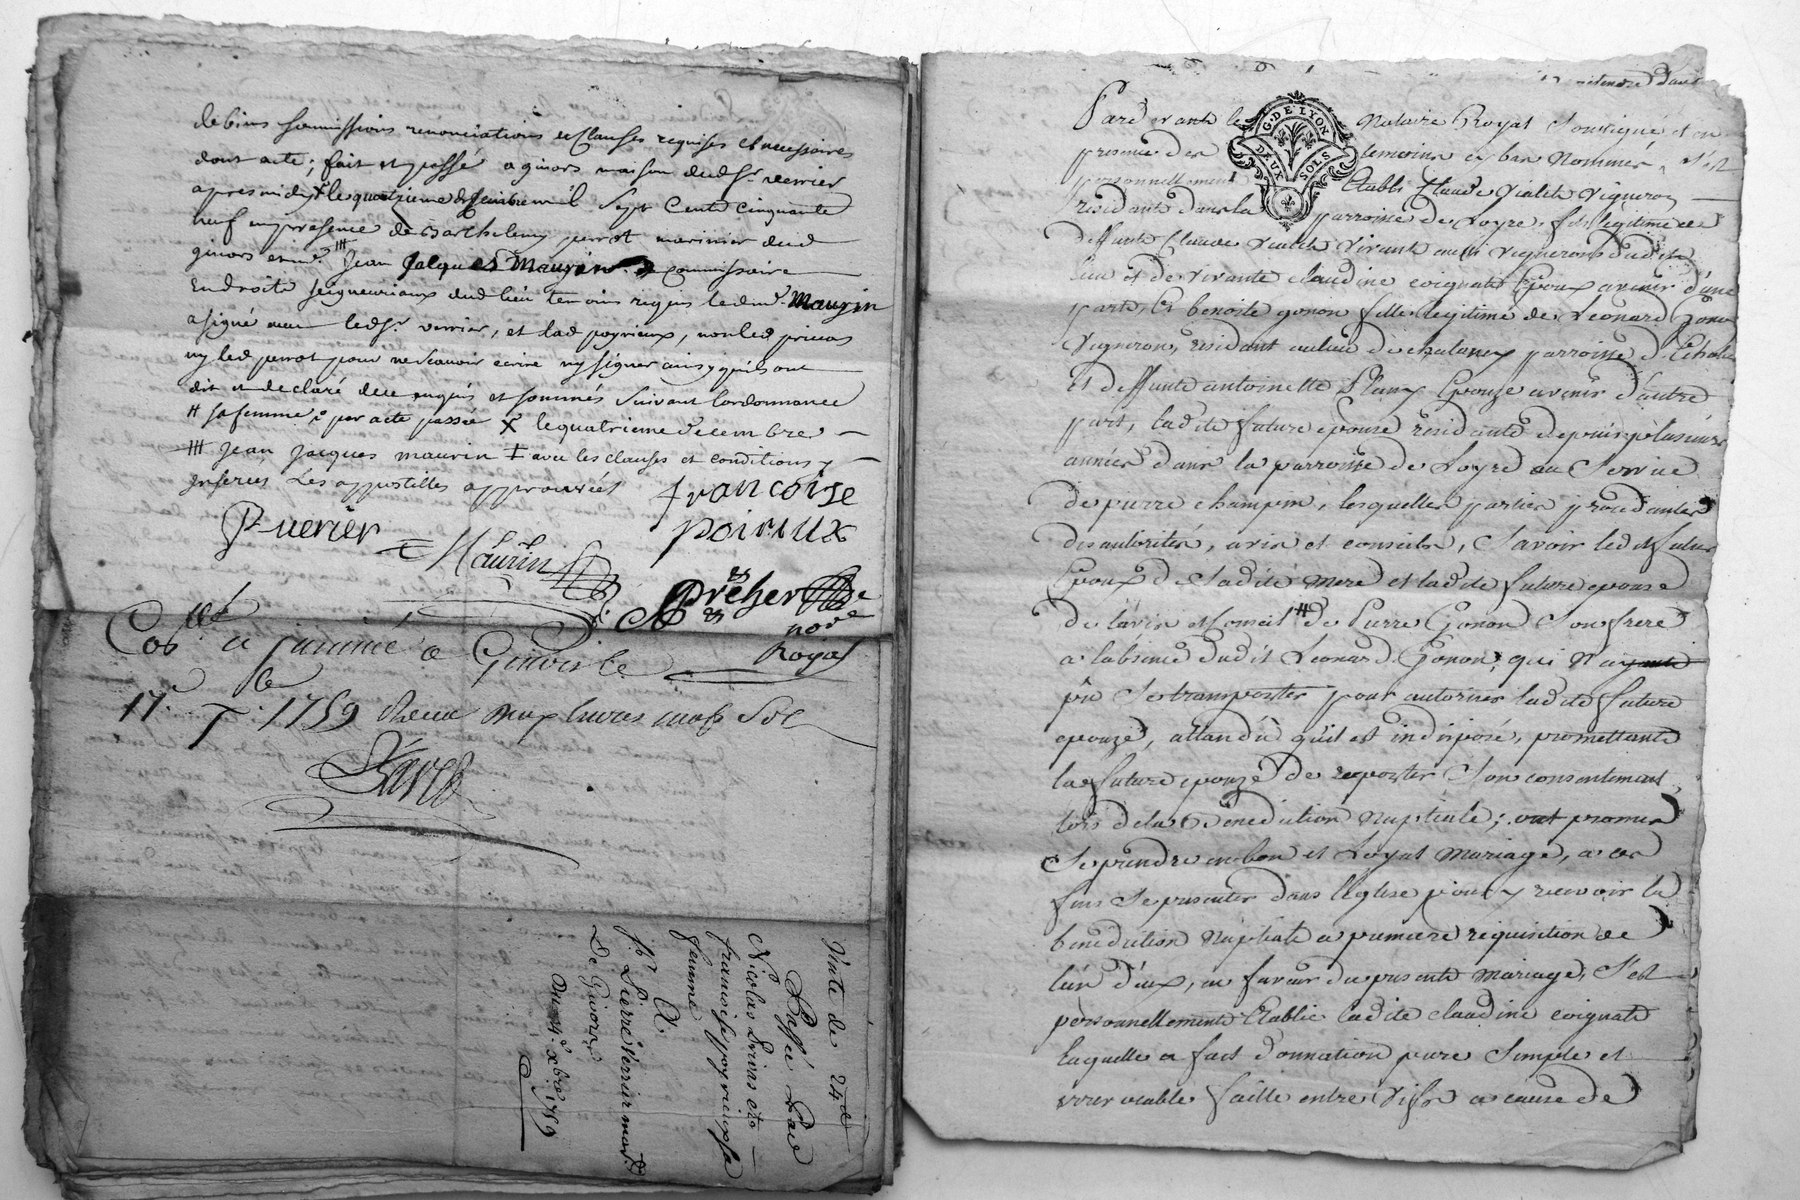 de biens soumissions renonciations et Clauses requises et necessaires
dont acte; fait et passé a givors maison dud Sr. verrier
apres midy X le quatrieme decembre mil Sept Cents cinquante
neuf en presence de Barthelemy perrot marinier dud
givors et mr. Jean Jacques Maurin commissaire
En droits seigneuriaux dud lieu temoins requis led mr. Maurin
a signé avec led Sr verrier, et lad poyrieux, non led privas
ny led perrot pour ne scavoir ecrire ny signer ainsy quils ont
dit et declaré de ce enquis et sommés suivant lordonnance
# sa femme : par acte passée X le quatrieme decembre
Jean Jacques maurin ‡ avec les clauses et conditions y
inserées Les appostilles approuvées
francoise
poirieux
P. verier
Maurin
nore
Royal
Coll. a Givors le
17. 1759 Receu livres Sols
Vente de 24 d
Passée Par
Nicolas Privas et
francoise poyrieux sa
femme
A
Sr. Pierre Verrier mard.
De Givors
Du 4e. xbre 1759
G. DE LYON
DEUX SOLS
Pardevant le Notaire Royal Soussigné et en
presence des temoins cy bas Nommés, S'est
personnellement Etabli Claude Vialete Vigneron
residant dans la parroisse de Loyre, fils legitime de
deffunt Claude Vialete Vivant aussi vigneron dudit
lieu et de vivante claudine coignate Epoux avenir d'une
part, Et benoite gonon fille legitime de Léonard Gonon
Vigneron, residant au lieu de chalancey parroisse d'Echalas
et deffunte antoinette Epouze avenir d'autre
part, ladite future epouse residante depuis plusieurs
années dans la parroisse de Loyre au Service
de pierre champin, lesquelles parties procedantes
des autorités, avis et conseils, Savoir led it futur
Epoux de Sadite mere et ladite future epouse
de l'avis et conseil # de Pierre Gonon Son frere
a l'absence dudit Léonard Gonon, qui N'a
pû Se transporter pour autoriser ladite future
epouze, attandû qu'il est indisposé, promettante
la future epouze de raporter Son consentement
lors de la Bénédiction Nuptiale; ont promis
Se prendre en bon et Loyal Mariage, a ces
fins Se presenter dans l'Eglise pour y recevoir la
benediction Nuptiale a premiere requisition de
l'un d'eux, en faveur du present mariage, S'est
personnellement Etablie ladite claudine coignate
Laquelle a fait donnation pure Simple et
irrevocable faitte entre Vifs a cause de